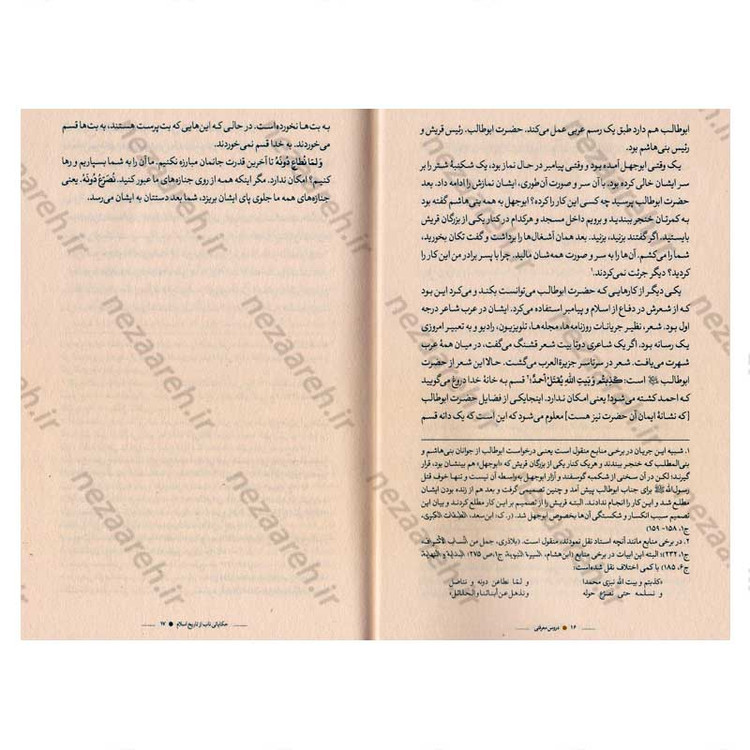 ابوطالب هم دارد طبق یک رسم عربی عمل می‌کند. حضرت ابوطالب. رئیس قریش و
رئیس بنی‌هاشم بود.
یک وقتی ابوجهل آمده بود و وقتی پیامبر در حال نماز بود، یک شکنبهٔ شتر را بر
سر ایشان خالی کرده بود. با آن سر و صورت آن‌طوری، ایشان نمازش را ادامه داد. بعد
حضرت ابوطالب پرسید چه کسی این کار را کرده؟ ابوجهل به همه بنی‌هاشم گفته بود
به کمرتان خنجر ببندید و برویم داخل مسجد و هرکدام در کنار یکی از بزرگان قریش
بایستید، اگر گفتند بزنید، بزنید. بعد همان آشغال‌ها را برداشت و گفت تکان بخورید،
شما را می‌کشم. آن‌ها را به سر و صورت همه‌شان مالید. چرا با پسر برادر من این کار را
کردید؟ دیگر جرئت نمی‌کردند.۱
یکی دیگر از کارهایی که حضرت ابوطالب می‌توانست بکند و می‌کرد این بود
که از شعرش در دفاع از اسلام و پیامبر استفاده می‌کرد. ایشان در عرب شاعر درجه
اول بود. شعر، نظیر جریانات روزنامه‌ها، مجله‌ها، تلویزیون، رادیو و به تعبیر امروزی
یک رسانه بود. اگر یک شاعری دو تا بیت شعر قشنگ می‌گفت، در میان همهٔ عرب
شهرت می‌یافت. شعر در سرتاسر جزیرةالعرب می‌گشت. حالا این شعر از حضرت
ابوطالب است: کَذِبتُم وَ بَیتِ اللّهِ یُقتَلُ أحمدُ؛۲ قسم به خانهٔ خدا دروغ می‌گویید
که احمد کشته می‌شود! یعنی امکان ندارد. اینجا یکی از فضایل حضرت ابوطالب
[که نشانهٔ ایمان آن حضرت نیز هست] معلوم می‌شود که این است که یک دانه قسم
۱. شبیه این جریان در برخی منابع منقول است یعنی درخواست ابوطالب از جوانان بنی‌هاشم و
بنی‌المطلب که خنجر ببندند و هریک کنار یکی از بزرگان قریش که «ابوجهل» هم بینشان بود، قرار
گیرند؛ لکن در آن سخنی از شکمبه گوسفند و آزار ابوجهل به‌واسطه آن نیست و تنها خوف قتل
رسول‌الله ﷺ برای جناب ابوطالب پیش آمد و چنین تصمیمی گرفت و بعد هم از زنده بودن ایشان
مطلع شد و این کار را انجام ندادند. البته قریش را از تصمیم بر این کار مطلع کردند و بیان این
تصمیم سبب انکسار و شکستگی آن‌ها بخصوص ابوجهل شد. (ر.ک: ابن‌سعد، الطبقات الکبری،
ج۱، ۱۵۸-۱۵۹)
۲. در برخی منابع مانند آنچه استاد نقل نمودند، منقول است. (بلاذری، جمل من انساب الأشراف،
ج۱، ۲۳۲)؛ البته این ابیات در برخی منابع (ابن‌هشام، السیرة النبویة، ج۱، ص ۲۷۵؛ البدایة و النهایة
ج۶، ۱۸۵) با کمی اختلاف نقل شده‌است:
«کذبتم و بیت الله نبزی محمدا و لمّا نطاعن دونه و نناضل
و نسلمه حتی نصرّع حوله و نذهل عن أبنائنا و الحلائل»
۱۶ ● دروس معرفتی
به بت‌ها نخورده است. در حالی که این‌هایی که بت‌پرست هستند، به بت‌ها قسم
می‌خوردند. به خدا قسم نمی‌خوردند.
وَ لمّا نُطاعِ دُونَهُ تا آخرین قدرت جانمان مبارزه نکنیم. ما آن را به شما بسپاریم و رها
کنیم؟ امکان ندارد. مگر اینکه همه از روی جنازه‌های ما عبور کنید. نُصَرَّعُ دُونَهُ. یعنی
جنازه‌های همه ما جلوی پای ایشان بریزد، شما بعد دستتان به ایشان می‌رسد.
حکایاتی ناب از تاریخ اسلام ● ۱۷
nezaareh.ir